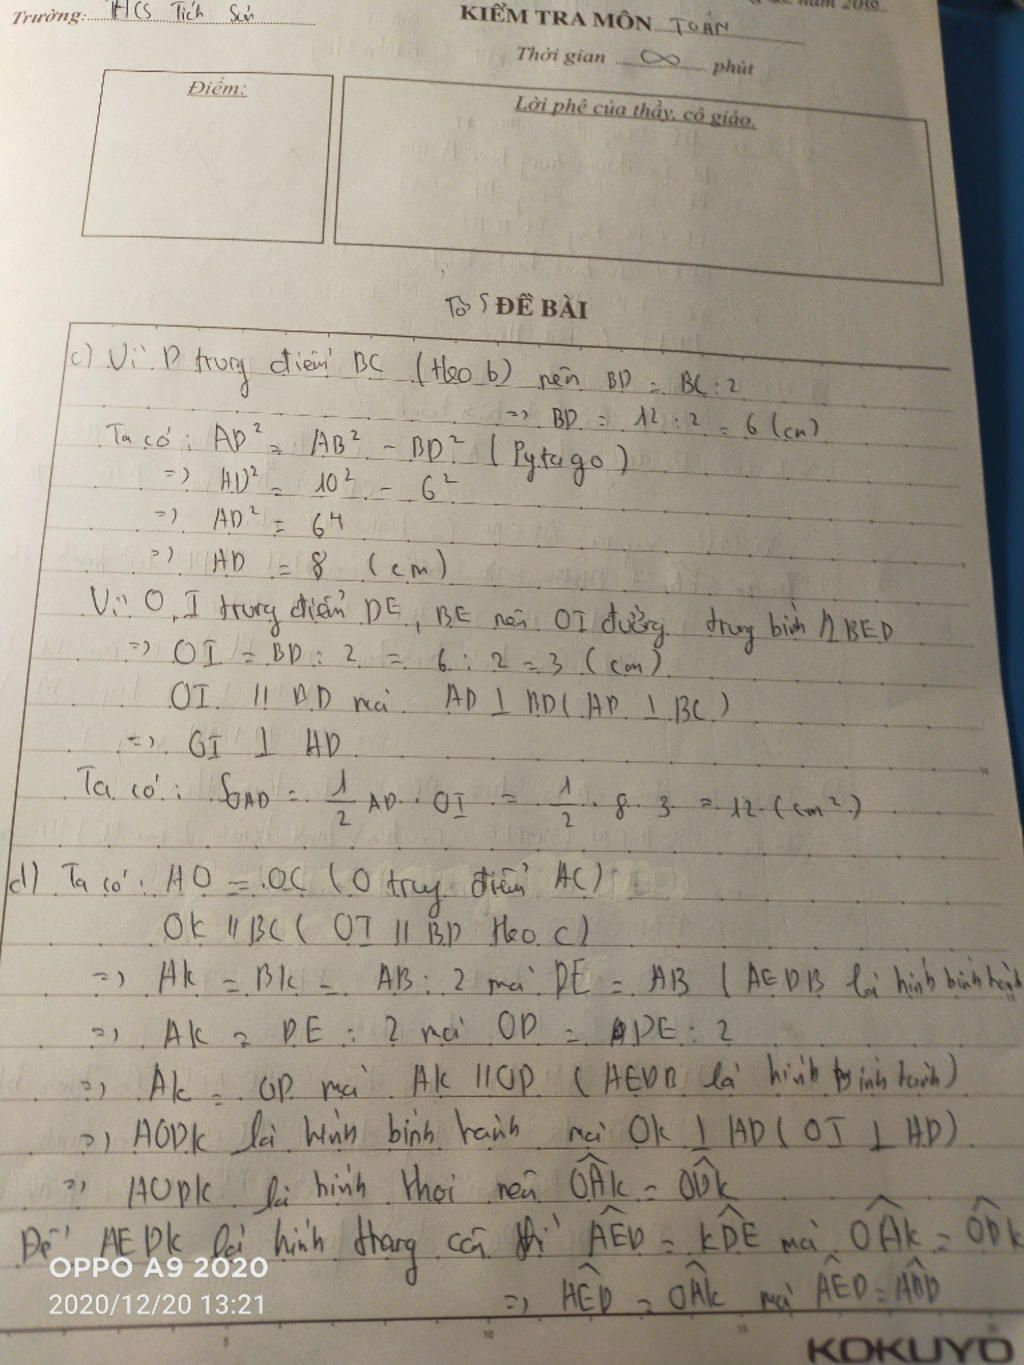 Trường: THCS Tích Sơn
KIỂM TRA MÔN TOÁN
Thời gian ∞ phút
Điểm:
Lời phê của thầy, cô giáo.
Tờ 5 ĐỀ BÀI
c) Vì D trung điểm BC (theo b) nên BD = BC : 2
=> BD = 12 : 2 = 6 (cm)
Ta có: AD² = AB² - BD² (Pytago)
=> AD² = 10² - 6²
=> AD² = 64
=> AD = 8 (cm)
Vì O, I trung điểm DE, BE nên OI đường trung bình △BED
=> OI = BD : 2 = 6 : 2 = 3 (cm)
OI // BD mà AD ⊥ BD (AD ⊥ BC)
=> OI ⊥ AD
Ta có: S_OAD = 1/2 AD . OI = 1/2 . 8 . 3 = 12 (cm²)
d) Ta có: AO = OC (O trung điểm AC)
OK // BC (OI // BD theo c)
=> AK = BK = AB : 2 mà DE = AB (AEDB là hình bình hành
=> AK = DE : 2 mà OD = DE : 2
=> AK = OD mà AK // OD (AEDB là hình bình hành)
=> AODK là hình bình hành mà OK ⊥ AD (OI ⊥ AD)
=> AODK là hình thoi nên OÂK = OD̂K
Để AEDK là hình thang cân thì AÊD = KD̂E mà OÂK = OD̂K
=> AÊD = OÂK mà AÊD = AB̂D
OPPO A9 2020
2020/12/20 13:21
5 10 15
KOKUYO